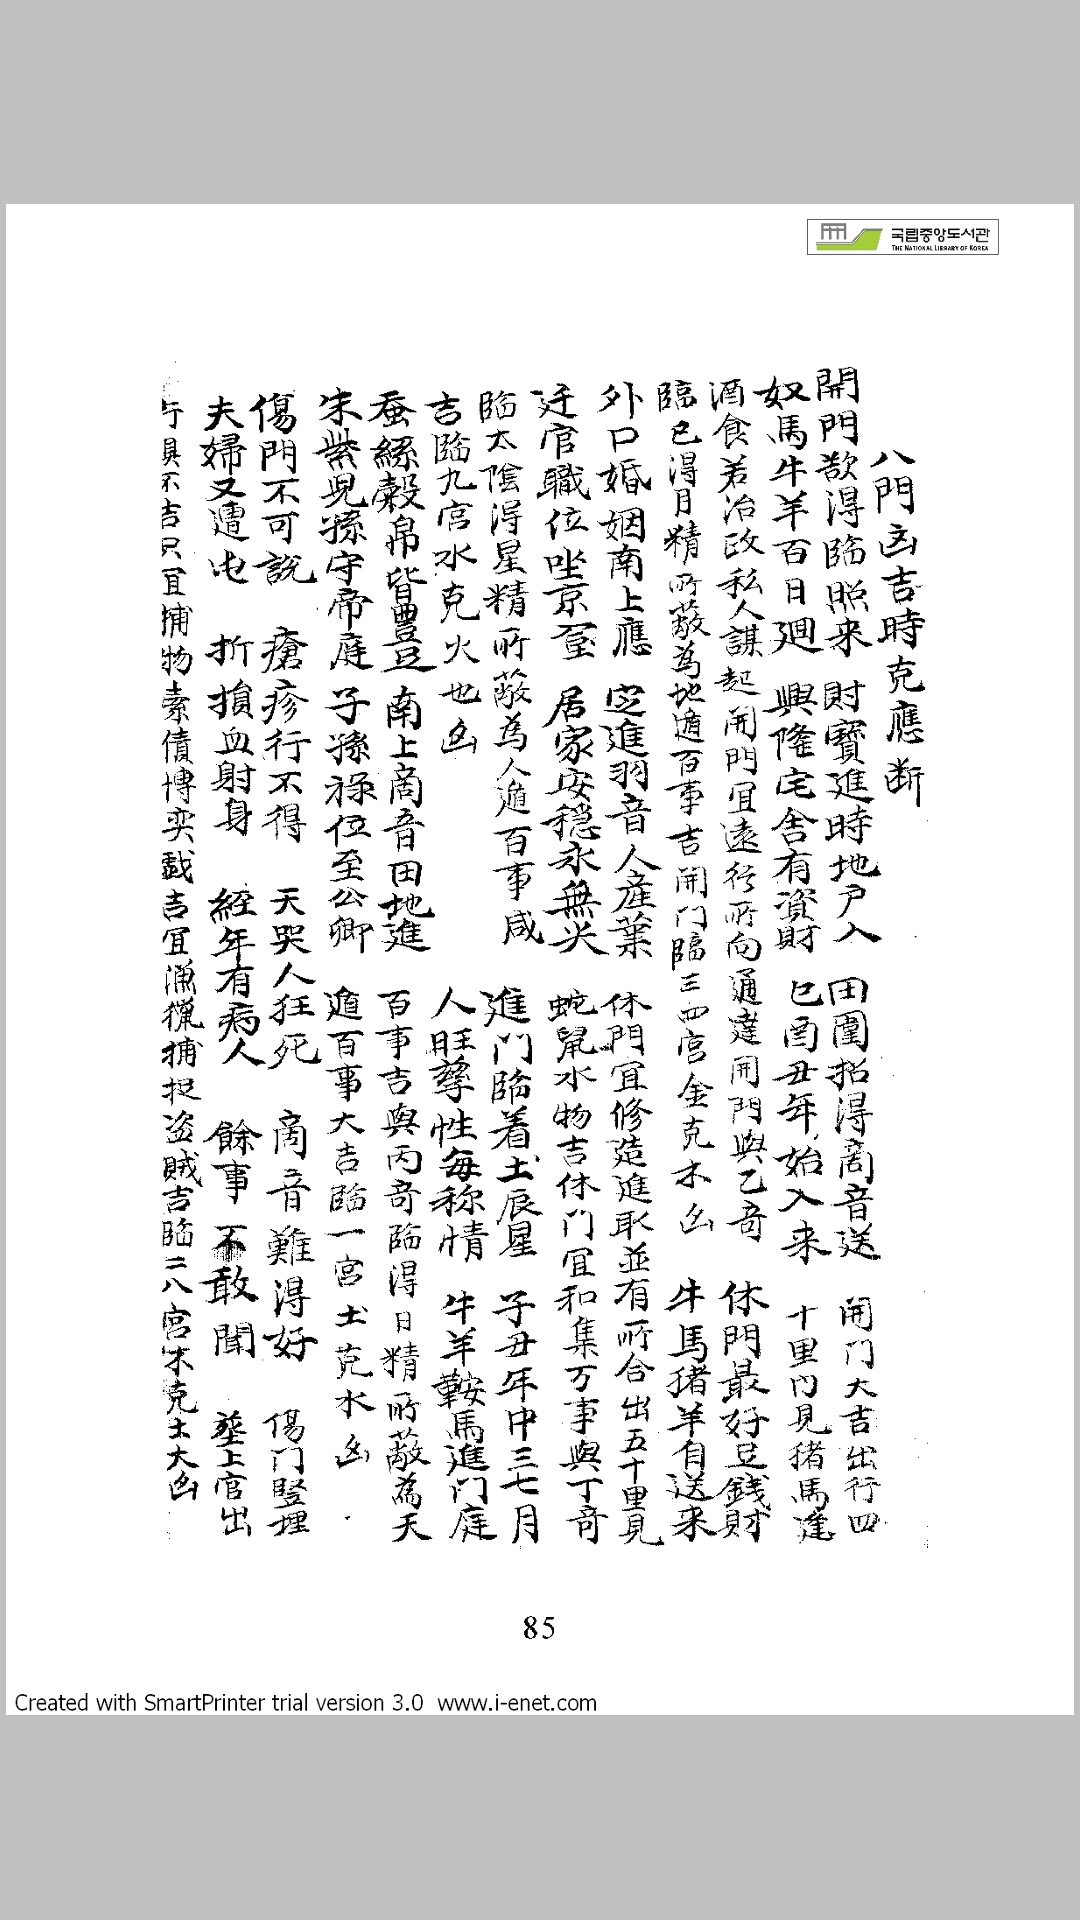 국립중앙도서관
THE NATIONAL LIBRARY OF KOREA
八門凶吉時克應断
開門欲得臨照来 財寶進時地户入 田園招得商音送 開门大吉出行四
奴馬牛羊百日廻 興隆宅舍有資財 巳酉丑年始入来 十里内見猪馬逢
酒食若治政私人謀起開門冝遠行所向通達開門與乙奇 休門最好豆銭財
臨已得月精所蔽為地遁百事吉開门臨三四宫金克木凶 牛馬猪羊自送来
外口婚姻南上應 定進羽音人産業 休門冝修造進取並有所合出五十里見
迁官職位坐京室 居家安穏永無灾 蛇鼠水物吉休门冝和集万事與丁奇
臨太陰得星精所蔽為人遁百事咸 進门臨着土辰星 子丑年中三七月
吉臨九宫水克火也凶 人旺孳性每称情 牛羊鞍馬進门庭
蚕絲穀帛皆豊豆 南上商音田地進 百事吉與丙奇臨得日精所蔽為天
朱紫児孫守帝庭 子孫禄位至公卿 遁百事大吉臨一宫土克水凶
傷門不可説 瘡疹行不得 天哭人狂死 商音難得好 傷门竪埋
夫婦又遭屯 折損血射身 経年有病人 餘事不敢聞 塟上官出
行俱不吉只冝捕物索債博奕戱吉冝漁獵捕捉盗賊吉臨二八宫木克土大凶
85
Created with SmartPrinter trial version 3.0 www.i-enet.com